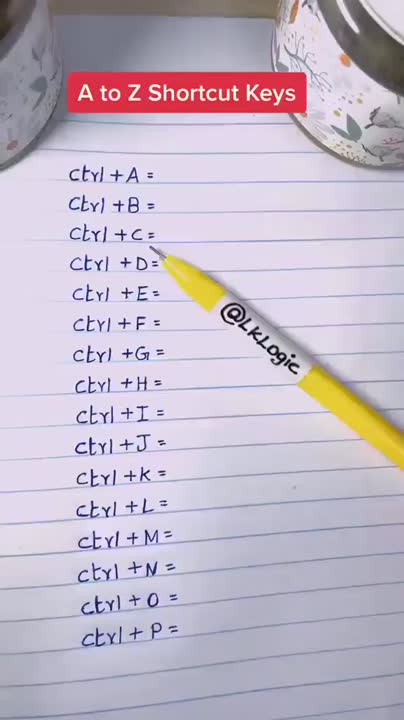 A to Z Shortcut Keys
ctrl + A =
ctrl + B =
ctrl + C =
ctrl + D =
ctrl + E =
ctrl + F =
ctrl + G =
ctrl + H =
ctrl + I =
ctrl + J =
ctrl + K =
ctrl + L =
ctrl + M =
ctrl + N =
ctrl + O =
ctrl + P =
@LKLogic